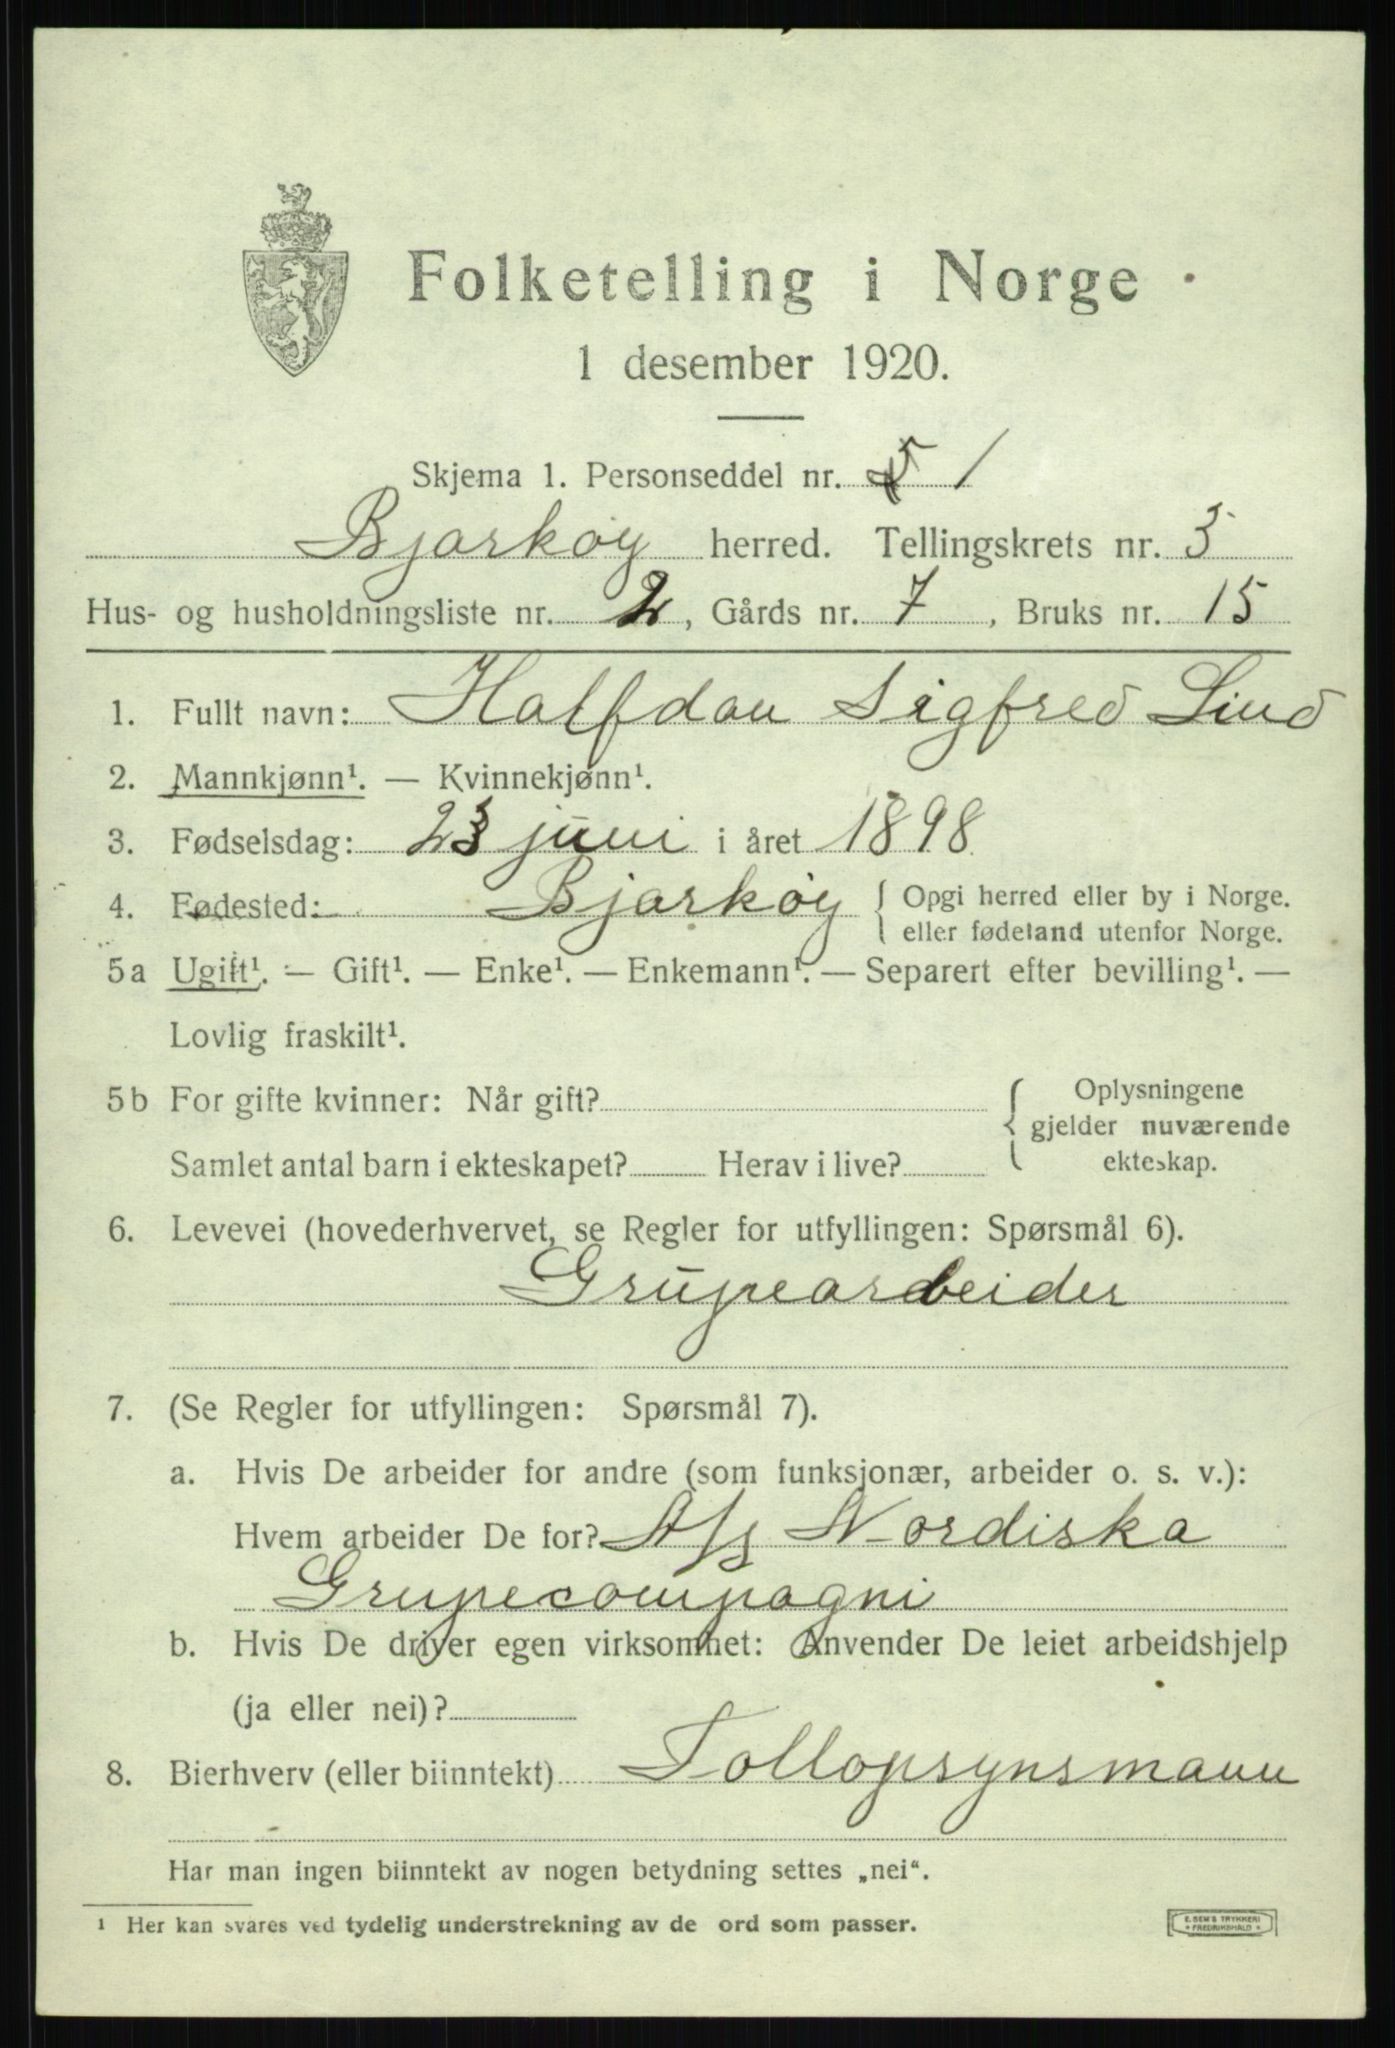 Folketelling i Norge
1 desember 1920.
Skjema 1. Personseddel nr. 1
Bjarkøy herred. Tellingskrets nr. 3
Hus- og husholdningsliste nr. 2, Gårds nr. 7, Bruks nr. 15
1. Fullt navn: Halfdan Sigfred Lind
2. Mannkjønn¹. — Kvinnekjønn¹.
3. Fødselsdag: 23 juni i året 1898
4. Fødested: Bjarkøy { Opgi herred eller by i Norge.
eller fødeland utenfor Norge.
5a Ugift¹. — Gift¹. — Enke¹. — Enkemann¹. — Separert efter bevilling¹. —
Lovlig fraskilt¹.
5b For gifte kvinner: Når gift? { Oplysningene
gjelder nuværende
Samlet antal barn i ekteskapet? Herav i live? ekteskap.
6. Levevei (hovederhvervet, se Regler for utfyllingen: Spørsmål 6).
Grupearbeider
7. (Se Regler for utfyllingen: Spørsmål 7).
a. Hvis De arbeider for andre (som funksjonær, arbeider o. s. v.):
Hvem arbeider De for? A/s Nordiska
Grupecompagni
b. Hvis De driver egen virksomhet: Anvender De leiet arbeidshjelp
(ja eller nei)?
8. Bierhverv (eller biinntekt) Tollopsynsmann
Har man ingen biinntekt av nogen betydning settes „nei“.
¹ Her kan svares ved tydelig understrekning av de ord som passer.
E. SEM'S TRYKKERI
* FREDRIKSHALD *